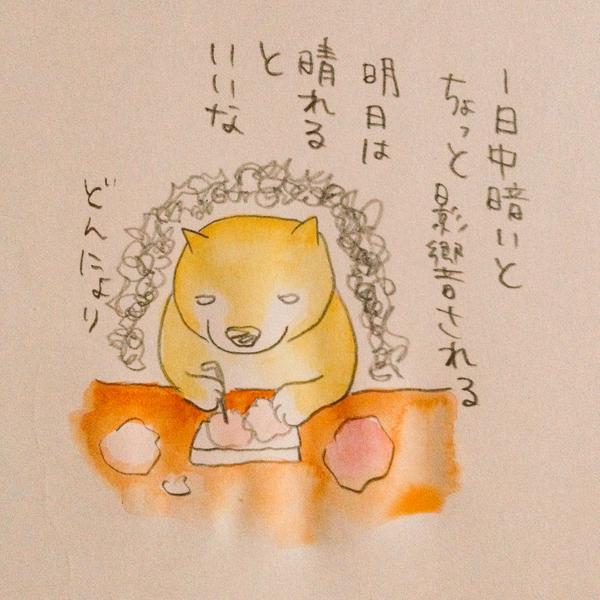 一日中暗いと
ちょっと影響される
明日は
晴れる
と
いいな
どんにより